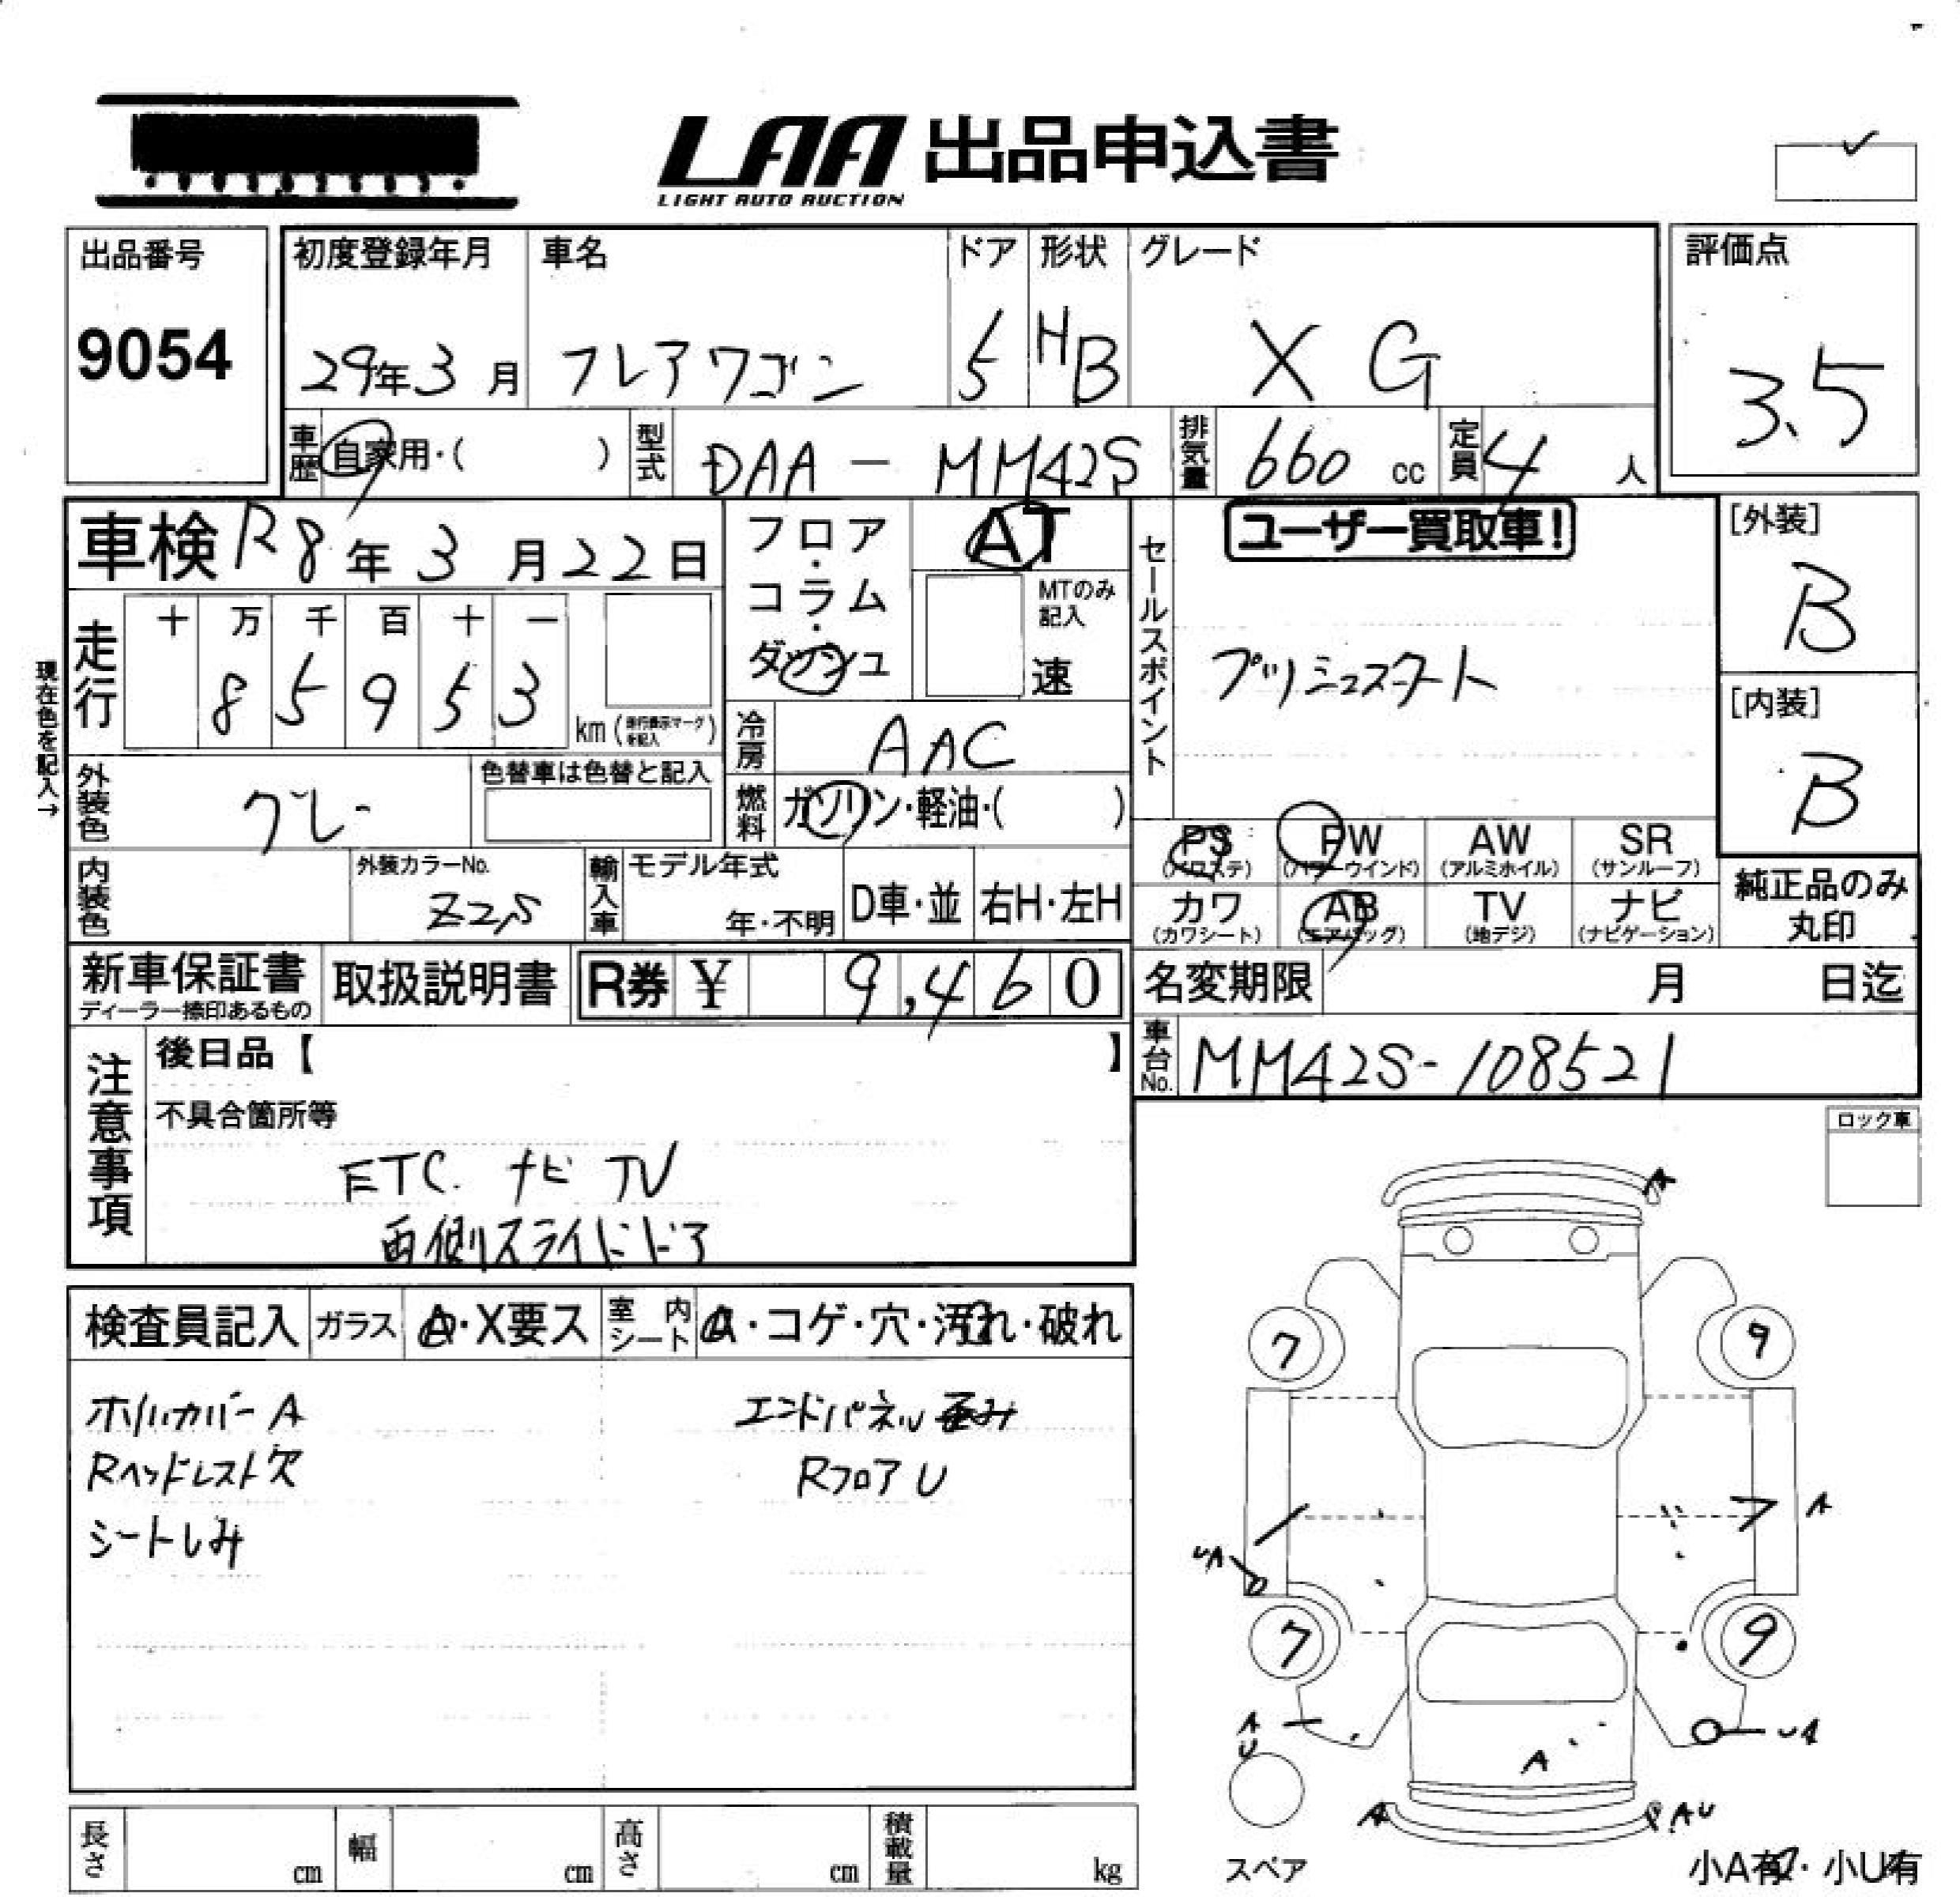 LAA 出品申込書
LIGHT AUTO AUCTION
出品番号
9054
初度登録年月
29年3月
車名
フレアワゴン
ドア
5
形状
HB
グレード
XG
評価点
3.5
車歴
自家用・( )
型式
DAA - MM42S
排気量
660 cc
定員
4 人
車検 R8年3月22日
フロア・コラム・ダッシュ
AT
MTのみ記入
速
セールスポイント
ユーザー買取車!
プッシュスタート
[外装]
B
[内装]
B
現在色を記入→
走行
十 万 千 百 十 一
8 5 9 5 3
km(走行表示マークを記入)
冷房
AAC
燃料
ガソリン・軽油・( )
外装色
グレー
色替車は色替と記入
内装色
外装カラーNo.
Z2S
輸入車
モデル年式
年・不明
D車・並
右H・左H
PS (パワステ)
PW (パワーウインド)
AW (アルミホイル)
SR (サンルーフ)
カワ (カワシート)
AB (エアバッグ)
TV (地デジ)
ナビ (ナビゲーション)
純正品のみ丸印
新車保証書
ディーラー捺印あるもの
取扱説明書
R券 ¥ 9,460
名変期限 月 日迄
車台No.
MM42S-108521
注意事項
後日品【 】
不具合箇所等
ETC. ナビ TV
両側スライドドア
ロック車
検査員記入
ガラス
A・X要ス
室内シート
A・コゲ・穴・汚れ・破れ
ホイルカバーA
Rヘッドレスト欠
シートしみ
エンドパネル歪み
RフロアU
A
7
9
A
UA
7
9
A
U
UA
A
A
AU
スペア
小A有・小U有
長さ cm
幅 cm
高さ cm
積載量 kg